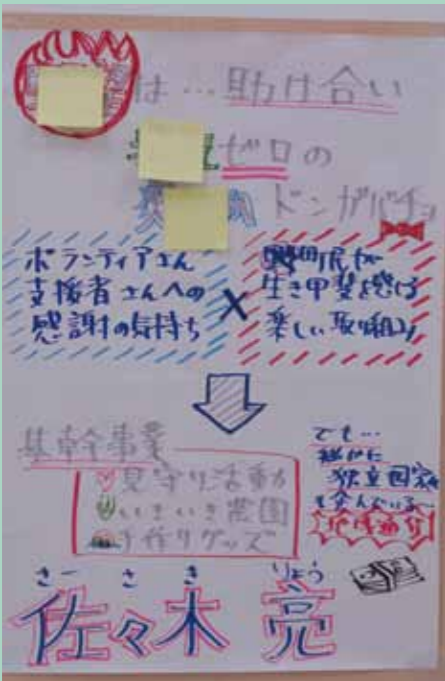 は…助け合い
ゼロの
ドンガバチョ
ボランティアさん
支援者さんへの
感謝の気持ち
×
町民が
生き甲斐を感じる
楽しい取り組み
基幹事業
見守り活動
いきいき農園
手作りグッズ
でも…
秘かに
独立国家
を企んでいる…
地域通貨
さ さ き りょう
佐々木 亮